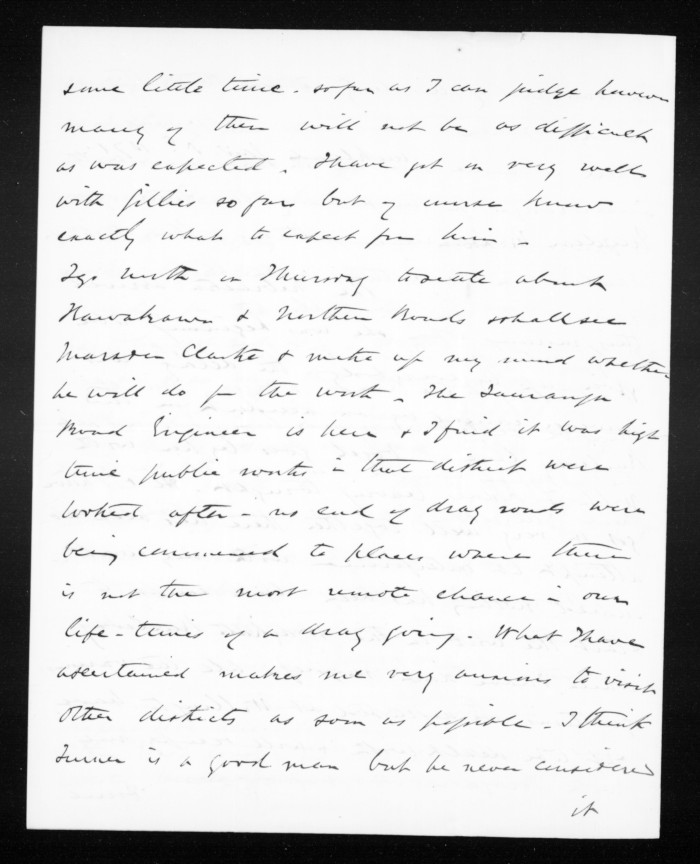 some little time. so far as I can judge however
many of them will not be as difficult
as was expected. I have got on very well
with Gillies so far but of course know
exactly what to expect from him.
I go north on Thursday to settle about
Kawakawa & Northern Roads & shall see
Marsden Clarke & make up my mind whether
he will do for the work. The Tauranga
Road Engineer is here & I find it was high
time public works in that district were
looked after - no end of dray roads were
being commenced to places where there
is not the most remote chance in our
life-times of a dray going. What I have
ascertained makes me very anxious to visit
other districts as soon as possible. I think
Turner is a good man but he never considered
it